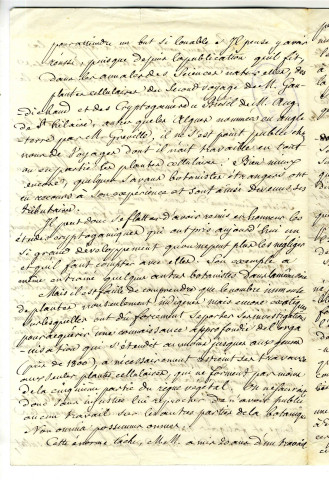 pour atteindre un but si louable. Il pense y avoir
réussi, puisque depuis la publication qu'il fit,
dans les annales des Sciences naturelles, des
plantes cellulaires du second voyage de M. Gau-
dichaud et des Cryptogames du Brésil de M. Aug.
de St Hilaire, outre quelques Algues nommées en Angle
terre par M. Greville, il ne s'est point publié chez
nous de Voyages dont il n'ait travaillé en tout
ou en partie les plantes cellulaires. Bien mieux
encore, quelques savans botanistes étrangers ont
eu recours à son expérience et sont ainsi devenus ses
tributaires.
Il peut donc se flatter d'avoir remis en honneur les
études cryptogamiques qui ont pris aujourd'hui un
si grand développement qu'on ne peut plus les négliger
et qu'il faut compter avec elles. Son exemple a
même entraîné quelques autres botanistes dans la même voie.
Mais il est facile de comprendre que le nombre immense
de plantes, non seulement indigènes mais encore exotiques
sur lesquelles ont dû forcément se porter ses investigations
pour acquérir une connaissance approfondie de l'orga
-nisation qui s'étendent au moins jusques aux genres
(près de 1800) a nécessairement restreint ses travaux
aux seules plantes cellulaires, qui ne forment pas moins
de la cinquième partie du règne végétal. On ne saurait
donc sans injustice lui reprocher de n'avoir publié
aucun travail sur les autres parties de la botanique.
Non omnia possumus omnes.
Cette énorme tâche, M. M. a mis 20 ans d'un travail